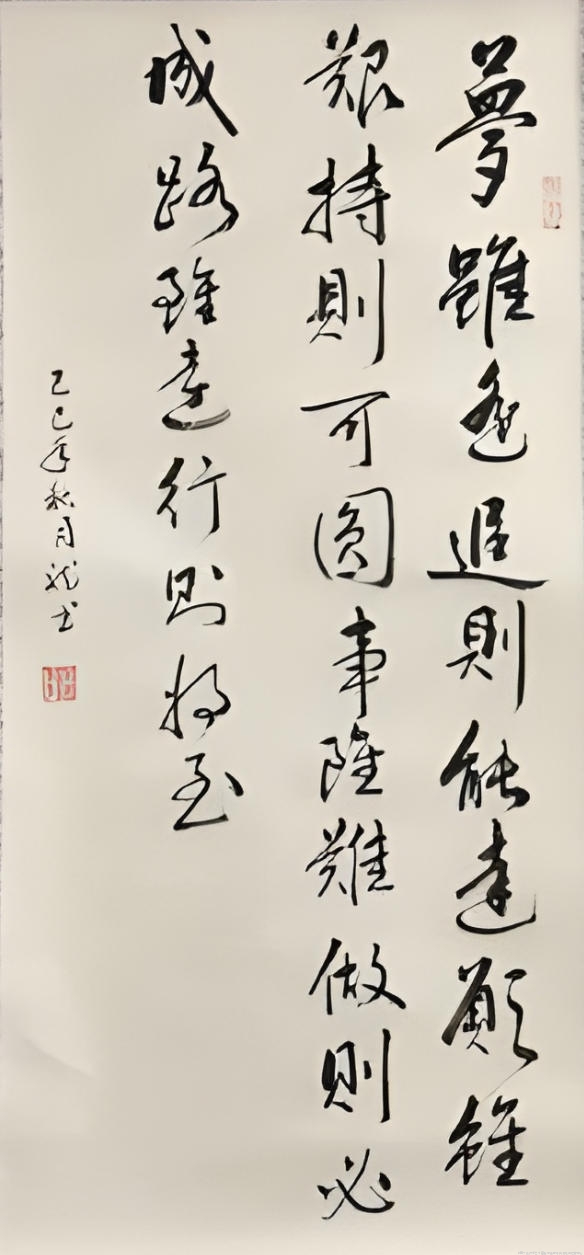 夢雖遙追則能達願雖
艱持則可圓事雖難做則必
成路雖遠行則将至
乙巳年秋月龍士